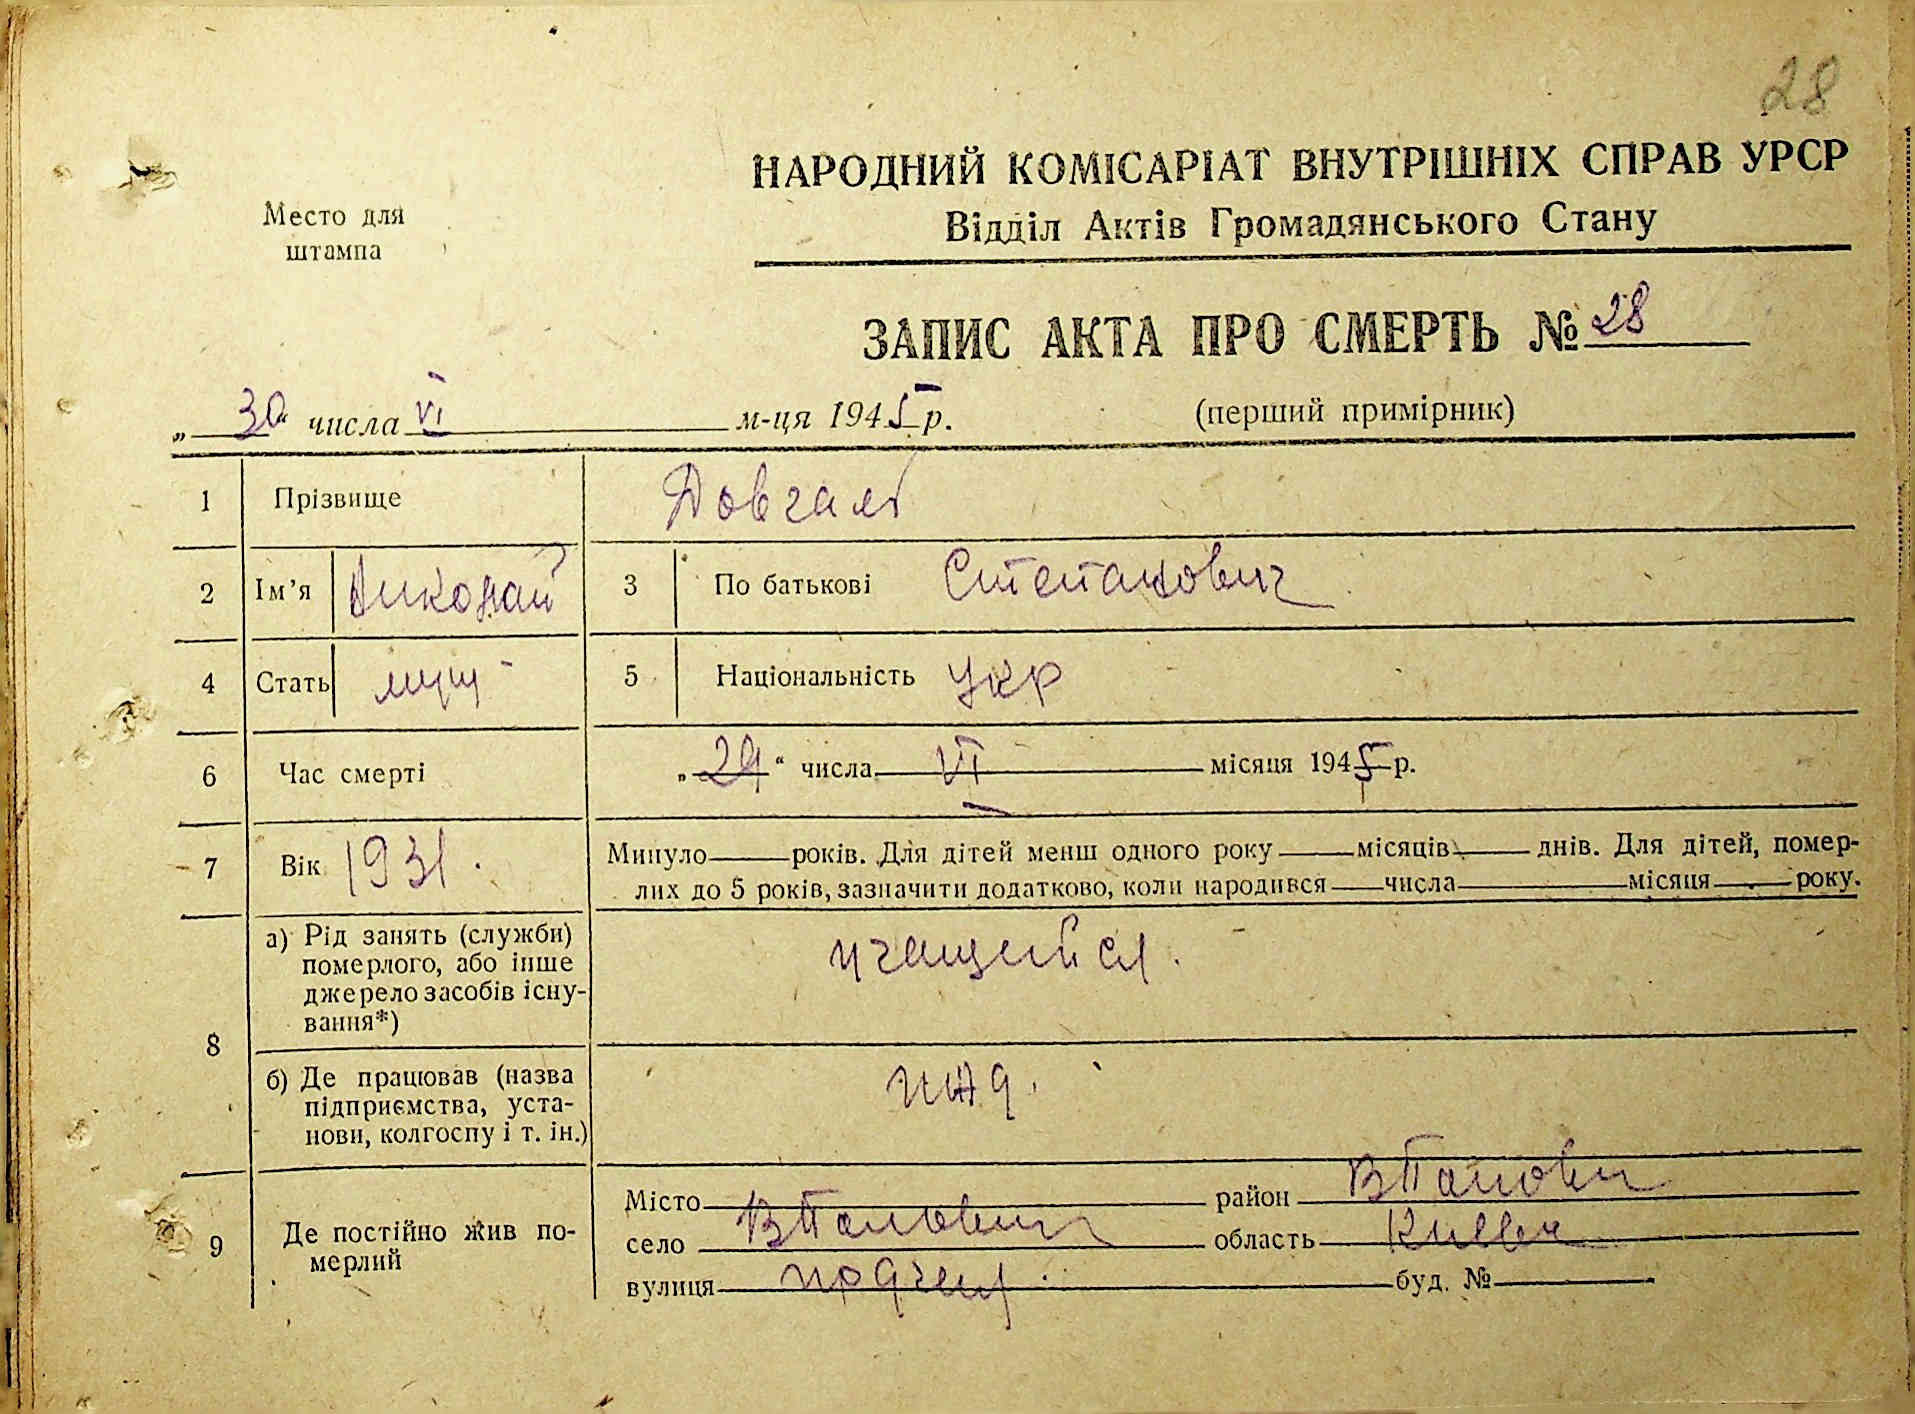 28
НАРОДНИЙ КОМІСАРІАТ ВНУТРІШНІХ СПРАВ УРСР
Відділ Актів Громадянського Стану
Место для
штампа
ЗАПИС АКТА ПРО СМЕРТЬ № 28
„30“ числа VI м-ця 1945 р. (перший примірник)
1 Прізвище Довгаль
2 Ім’я Николай 3 По батькові Степанович
4 Стать муж 5 Національність укр
6 Час смерті „29“ числа VI місяця 1945 р.
7 Вік 1931. Минуло років. Для дітей менш одного року місяців днів. Для дітей, помер-
лих до 5 років, зазначити додатково, коли народився числа місяця року.
8 а) Рід занять (служби)
померлого, або інше
джерело засобів існу-
вання*)
учащейся.
б) Де працював (назва
підприємства, уста-
нови, колгоспу і т. ін.)
ижд.
9 Де постійно жив по-
мерлий
Місто район
село область Киевск
вулиця буд. №